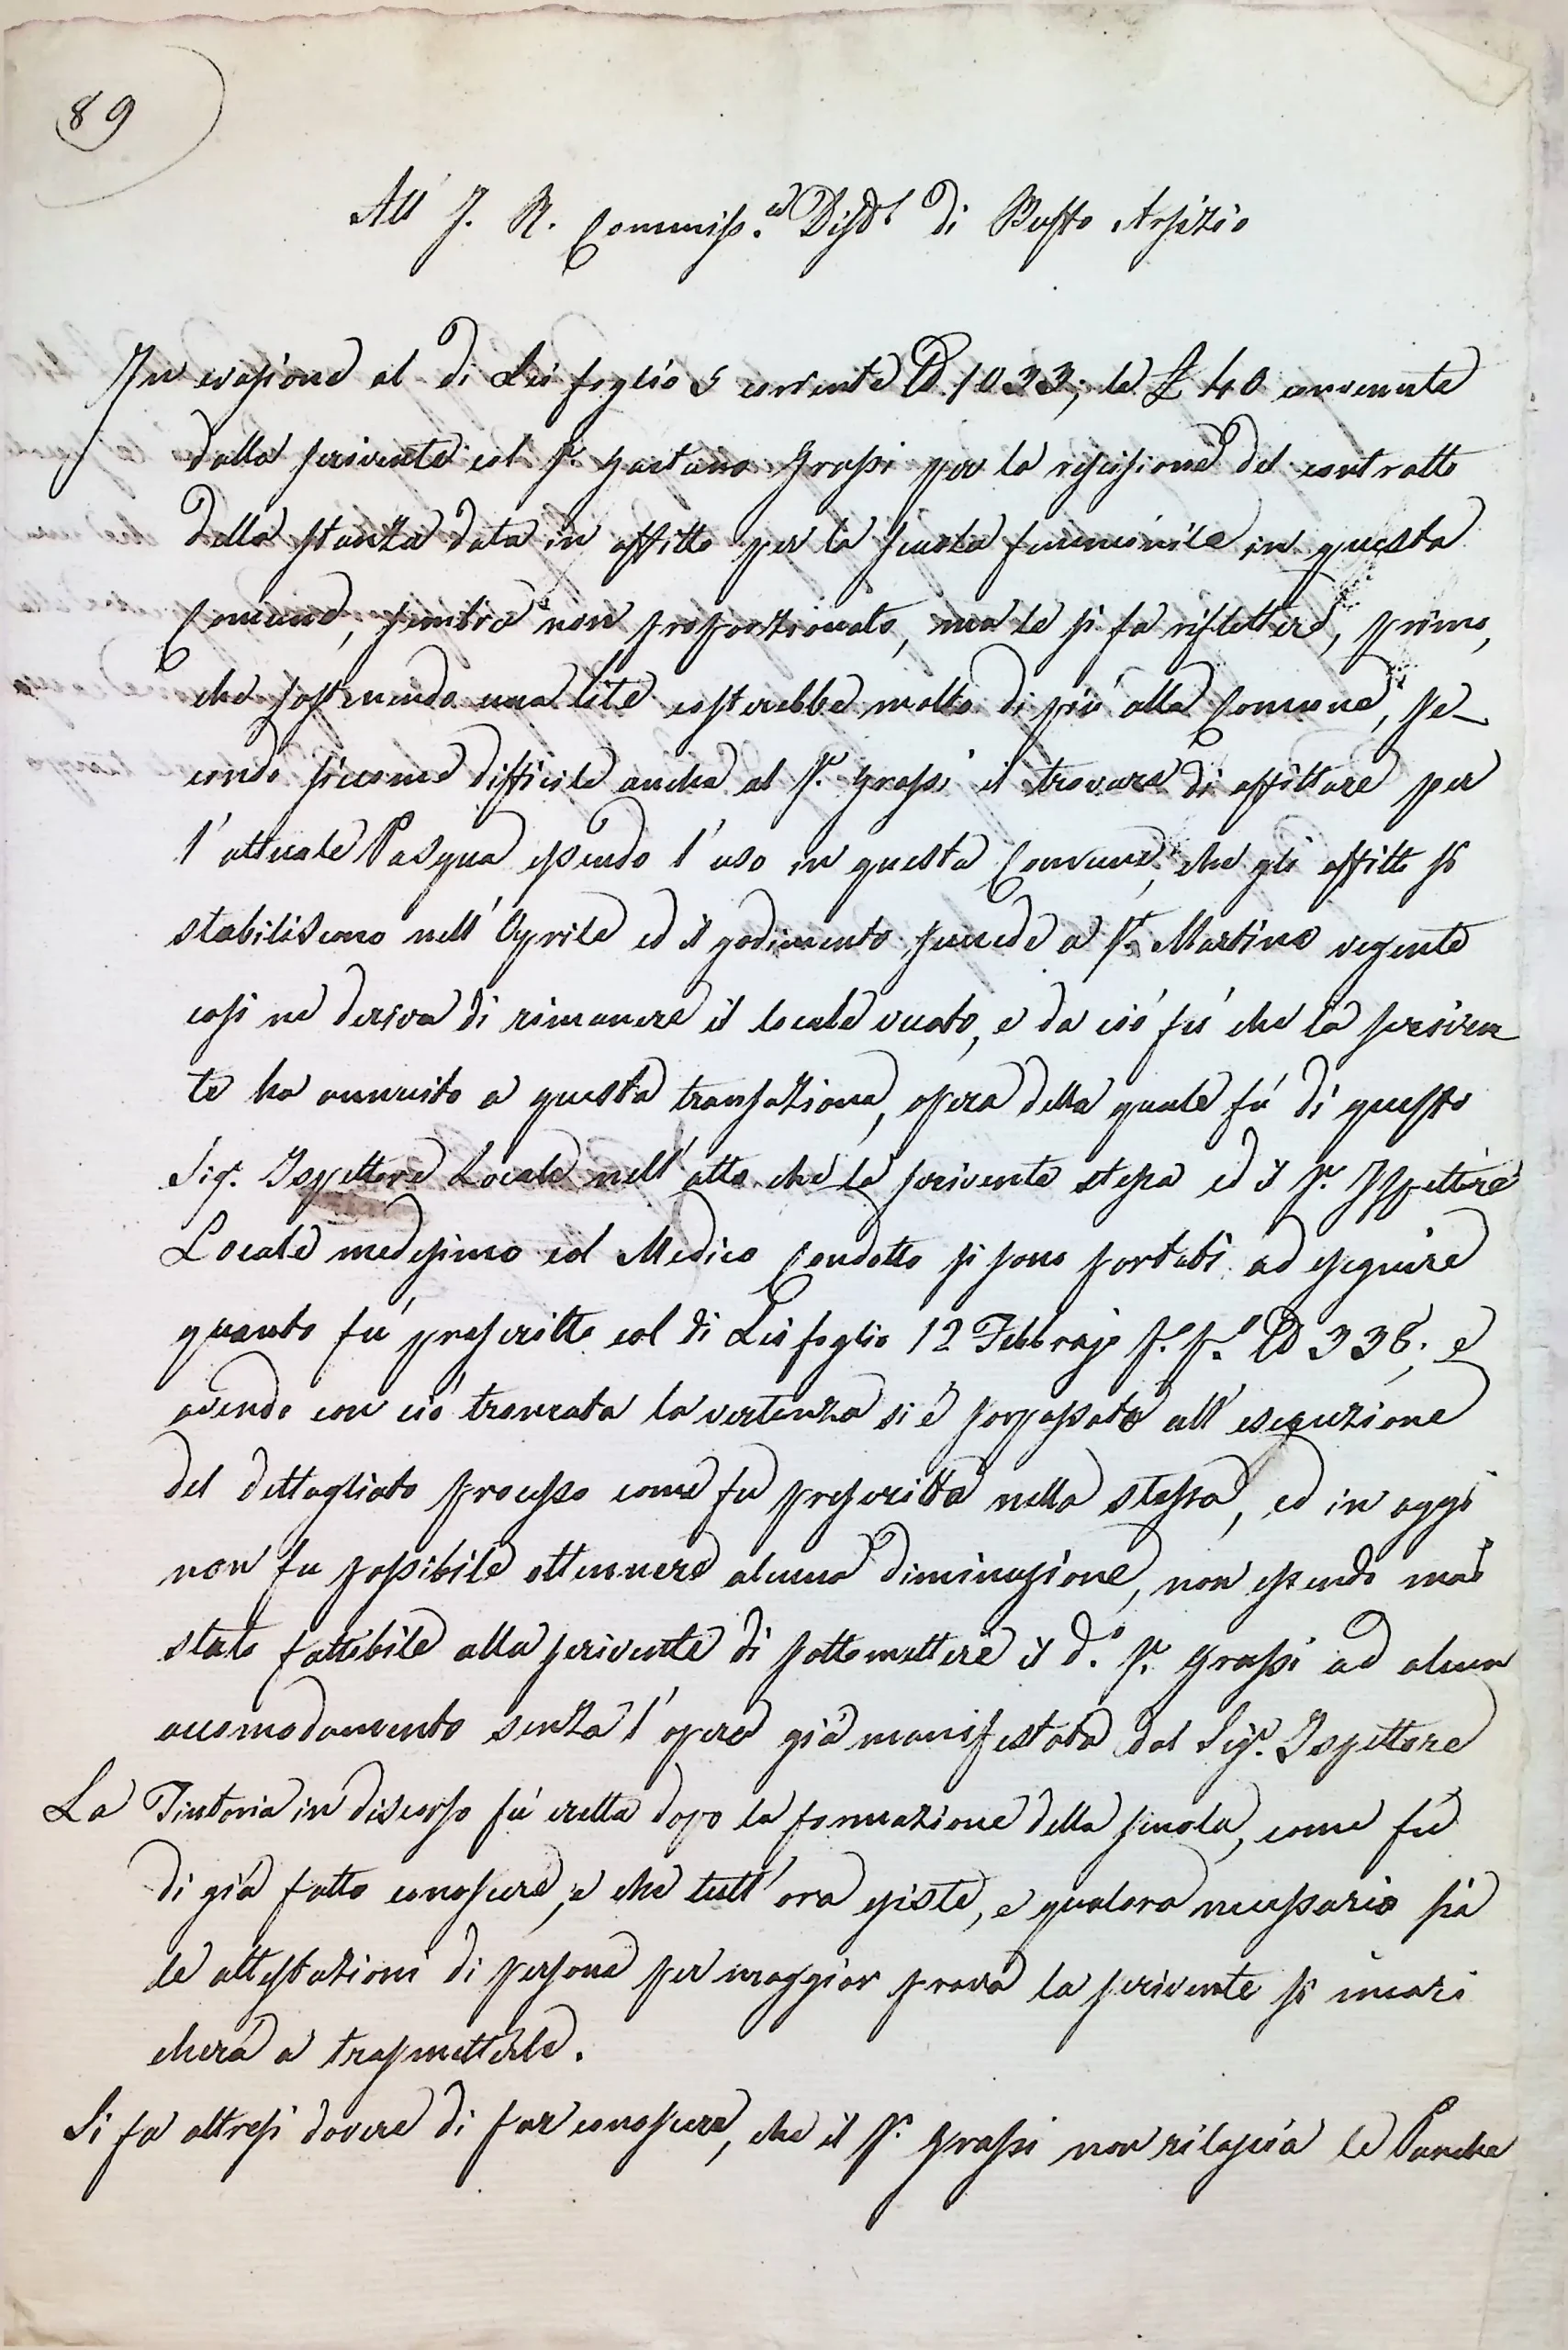 89
All' I. R. Commiss.º Dist.l di Busto Arsizio
In evasione al di Lei foglio 5 corrente N. 1033; le £ 40 convenute
dalla scrivente col S.r Gaetano Grassi per la rescissione del contratto
della stanza data in affitto per la scuola femminile in questa
Comune, sembra non proporzionato, ma le si fa riflettere, primo,
che sostenendo una lite costerebbe molto di più alla Comune, se-
condo siccome difficile anche al S.r Grassi il trovare di affittare per
l'attuale Pasqua essendo l'uso in questa Comune, che gli affitti si
stabiliscono nell'Aprile ed il godimento succede a S.n Martino vegente
così ne deriva di rimanere il locale vuoto, e da ciò fù che la scriven
te ha annuito a questa transazione, opera della quale fù di questo
Sig.r Ispettore Locale nell'atto che la scrivente stessa ed il S.r Ispettore
Locale medesimo col Medico Condotto si sono portati ad eseguire
quanto fù prescritto col di Lei foglio 12 Febbrajo s.º s.º N 338; e
avendo con ciò troncata la vertenza si è sorpassato all'esecuzione
del dettagliato processo come fu prescritta nella stessa, ed in oggi
non fu possibile ottennere alcuna diminuzione, non essendo mai
stato fattibile alla scrivente di sottomettere il d.º S.r Grassi ad alcun
accomodamento senza l'opera già manifestata dal Sig.r Ispettore
La Tintoria in discorso fù eretta dopo la formazione della scuola, come fù
di già fatto conoscere, e che tutt'ora esiste, e qualora necessario sia
le attestazioni di persone per maggior prova la scrivente si incari
cherà a trasmetterle.
Si fa altresì dovere di far conoscere, che il S.r Grassi non rilascia le Panche